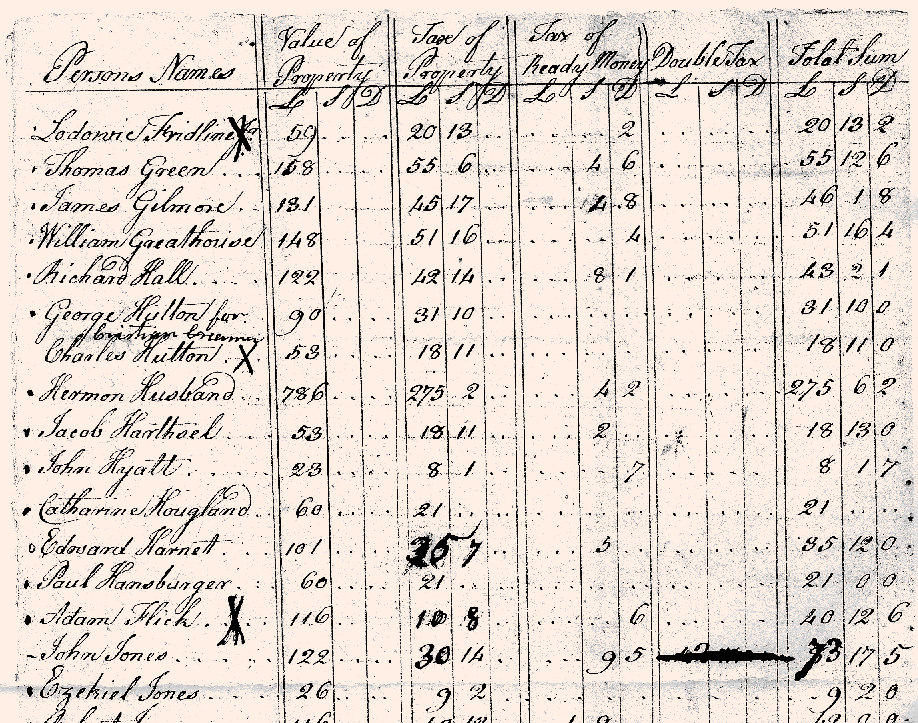 Persons Names Value of Property Tax of Property Tax of Ready Money Double Tax Total Sum
L S D L S D L S D L S D L S D
Lodowic Fridline X 59 20 13 2 20 13 2
Thomas Green 158 55 6 4 6 55 12 6
James Gilmore 131 45 17 4 8 46 1 8
William Greathouse 148 51 16 4 51 16 4
Richard Hall 122 42 14 8 1 43 2 1
George Hutton for 90 31 10 31 10 0
Charles Hutton X 53 18 11 18 11 0
Hermon Husband 786 275 2 4 2 275 6 2
Jacob Harthsel 53 18 11 2 18 13 0
John Hyatt 23 8 1 7 8 1 7
Catharine Hougland 60 21 21
Edward Harnett 101 35 7 5 35 12 0
Paul Hansburger 60 21 21 0 0
Adam Flick X 116 8 6 40 12 6
John Jones 122 30 14 9 5 73 17 5
Ezekiel Jones 26 9 2 9 2 0